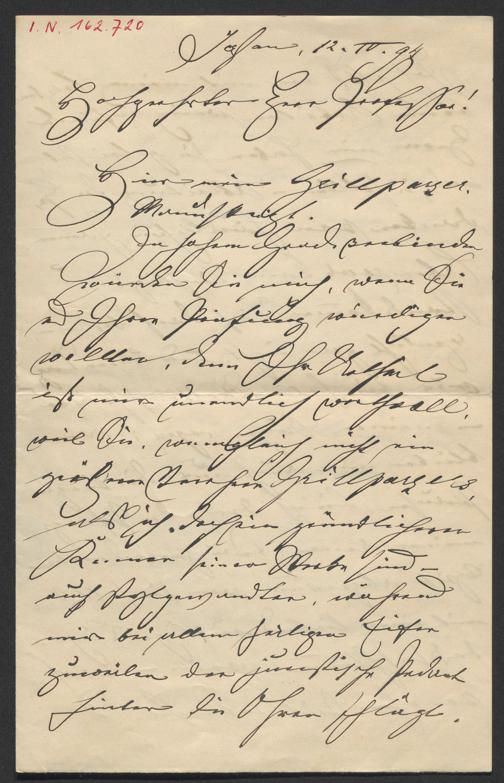 I. N. 162.720
12. IV. 94
Hochgeehrter Herr Professor!
Hier mein Grillparzer-
Manuskript.
In hohem Grade verbinden
würden Sie mich, wenn Sie
es Ihrer Prüfung würdigen
wollten, denn Ihr Urtheil
ist mir unendlich werthvoll,
weil Sie, wenngleich nicht ein
größerer Verehrer Grillparzers,
als ich, doch ein gründlicherer
Kenner seiner Werke sind –
auch stylgewandter, während
mir bei allem heiligen Eifer
zuweilen der juristische Pedant
hinter die Ohren schlägt.